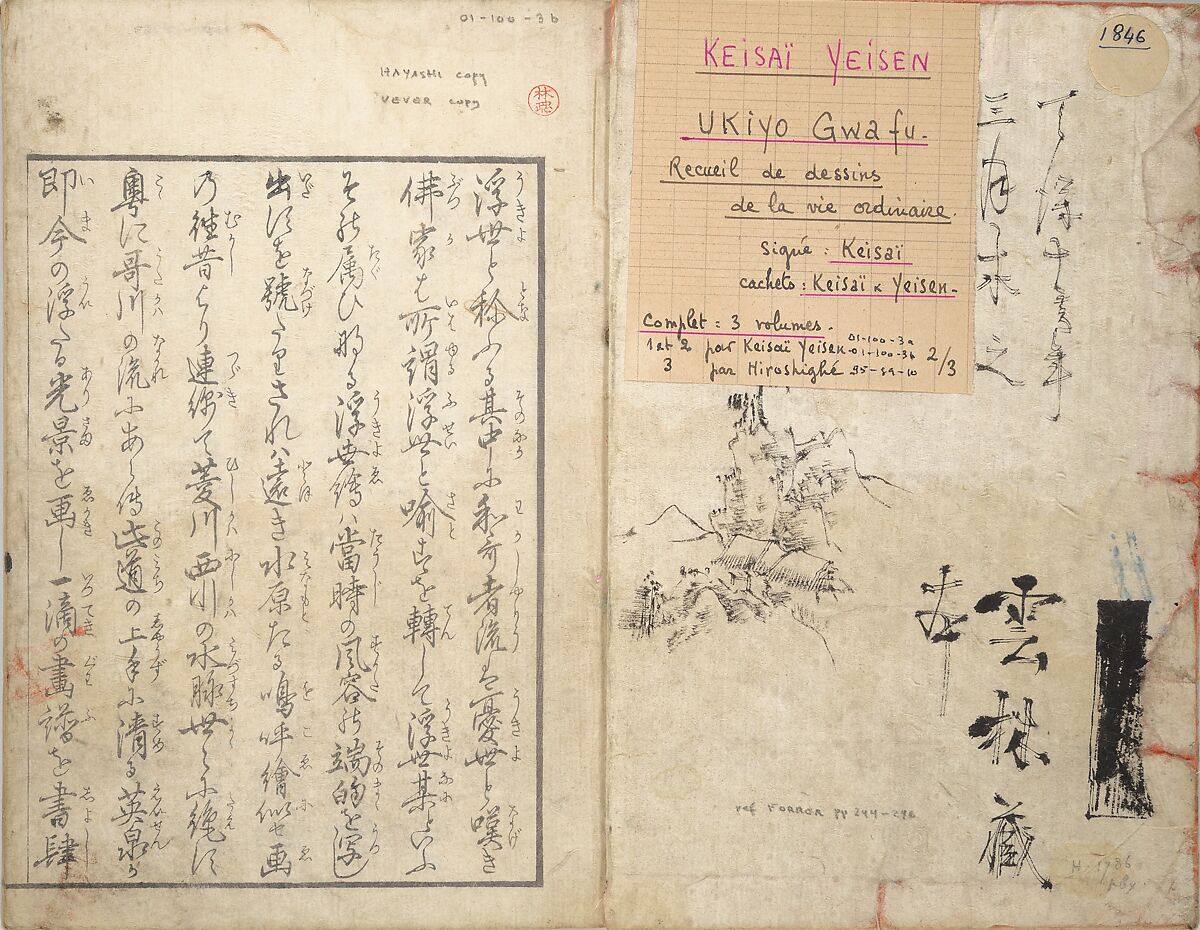 01-100-3b
HAYASHI copy
VEVER copy
林忠
KEISAÏ YEISEN
UKIYO GWAFU.
Recueil de dessins
de la vie ordinaire.
signé : Keisaï
cachets : Keisaï & Yeisen.
Complet = 3 volumes.
1 et 2 par Keisaï Yeisen 01-100-3a
01-100-3b
3 par Hiroshighé 95-89-10
2/3
1846
三月求之
雲林蔵
ref FORRER pp 244-246
浮世と称ふる其中に和哥者流は憂世と嘆き
佛家は所謂浮世と喩すを轉して浮世某といふ
其属ひ
浮世繪ハ當時の風容の端的を写し
出すを號
されハ遠き水原たる鳴呼繪似セ画
乃往昔より連綿て菱川西川の水脉世々に絶す
粤に哥川の流にあらて此道の上手に清る英泉か
即今の浮たる光景を画し一滴の畫譜を書肆